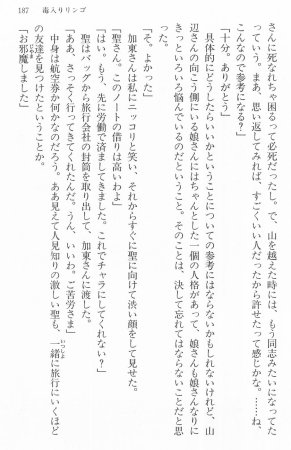 187　毒入りリンゴ
さんに死なれちゃ困るって必死だったし。で、山を越えた時には、もう同志みたいになってた
っていう。まあ、思い返してみれば、すごくいい人だったから許せたって感じかな。……ね、
こんなので参考になる？」
「十分。ありがとう」
　具体的にどうしたらいいかということについての参考にはならないかもしれないけれど、山
辺さんの向こう側にいる娘さんにはちゃんとした一個の人格があって、娘さんも娘さんなりに
きっといろいろ悩んでいるのだということ。そのことは、決して忘れてはならないことだと思
った。
「そ。よかった」
　加東さんは私にニッコリと笑い、それからすぐに聖に向けて渋い顔をして見せた。
「聖さん。このノートの借りは高いわよ」
「はい。もう、先に労働で済ましてきました。これでチャラにしてくれない？」
　聖はバッグから旅行会社の封筒を取り出して、加東さんに渡した。
「ああ、さっそく行ってきてくれたんだ。うん、いいわ。ご苦労さま」
　中身は航空券か何かなのだろう。ああ見えて人見知りの激しい聖も、一緒に旅行にいくほど
いつしよ
の友達を見つけたということか。
「お邪魔しました」
じやま